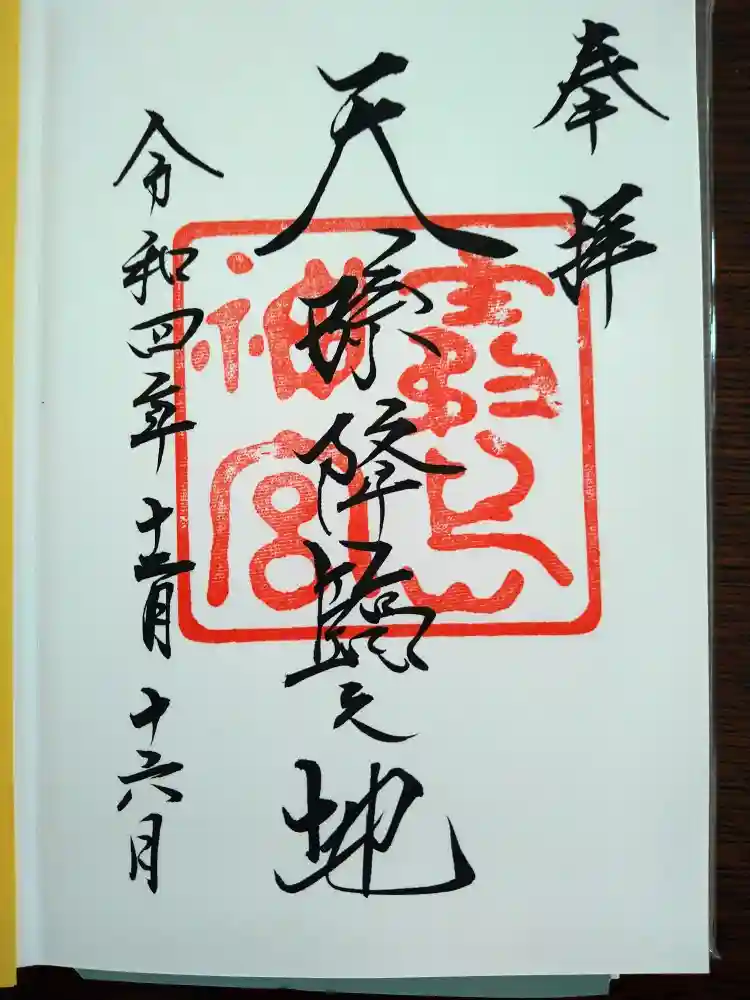 奉拝
天孫降臨之地
霧島
神宮
令和四年十二月十六日